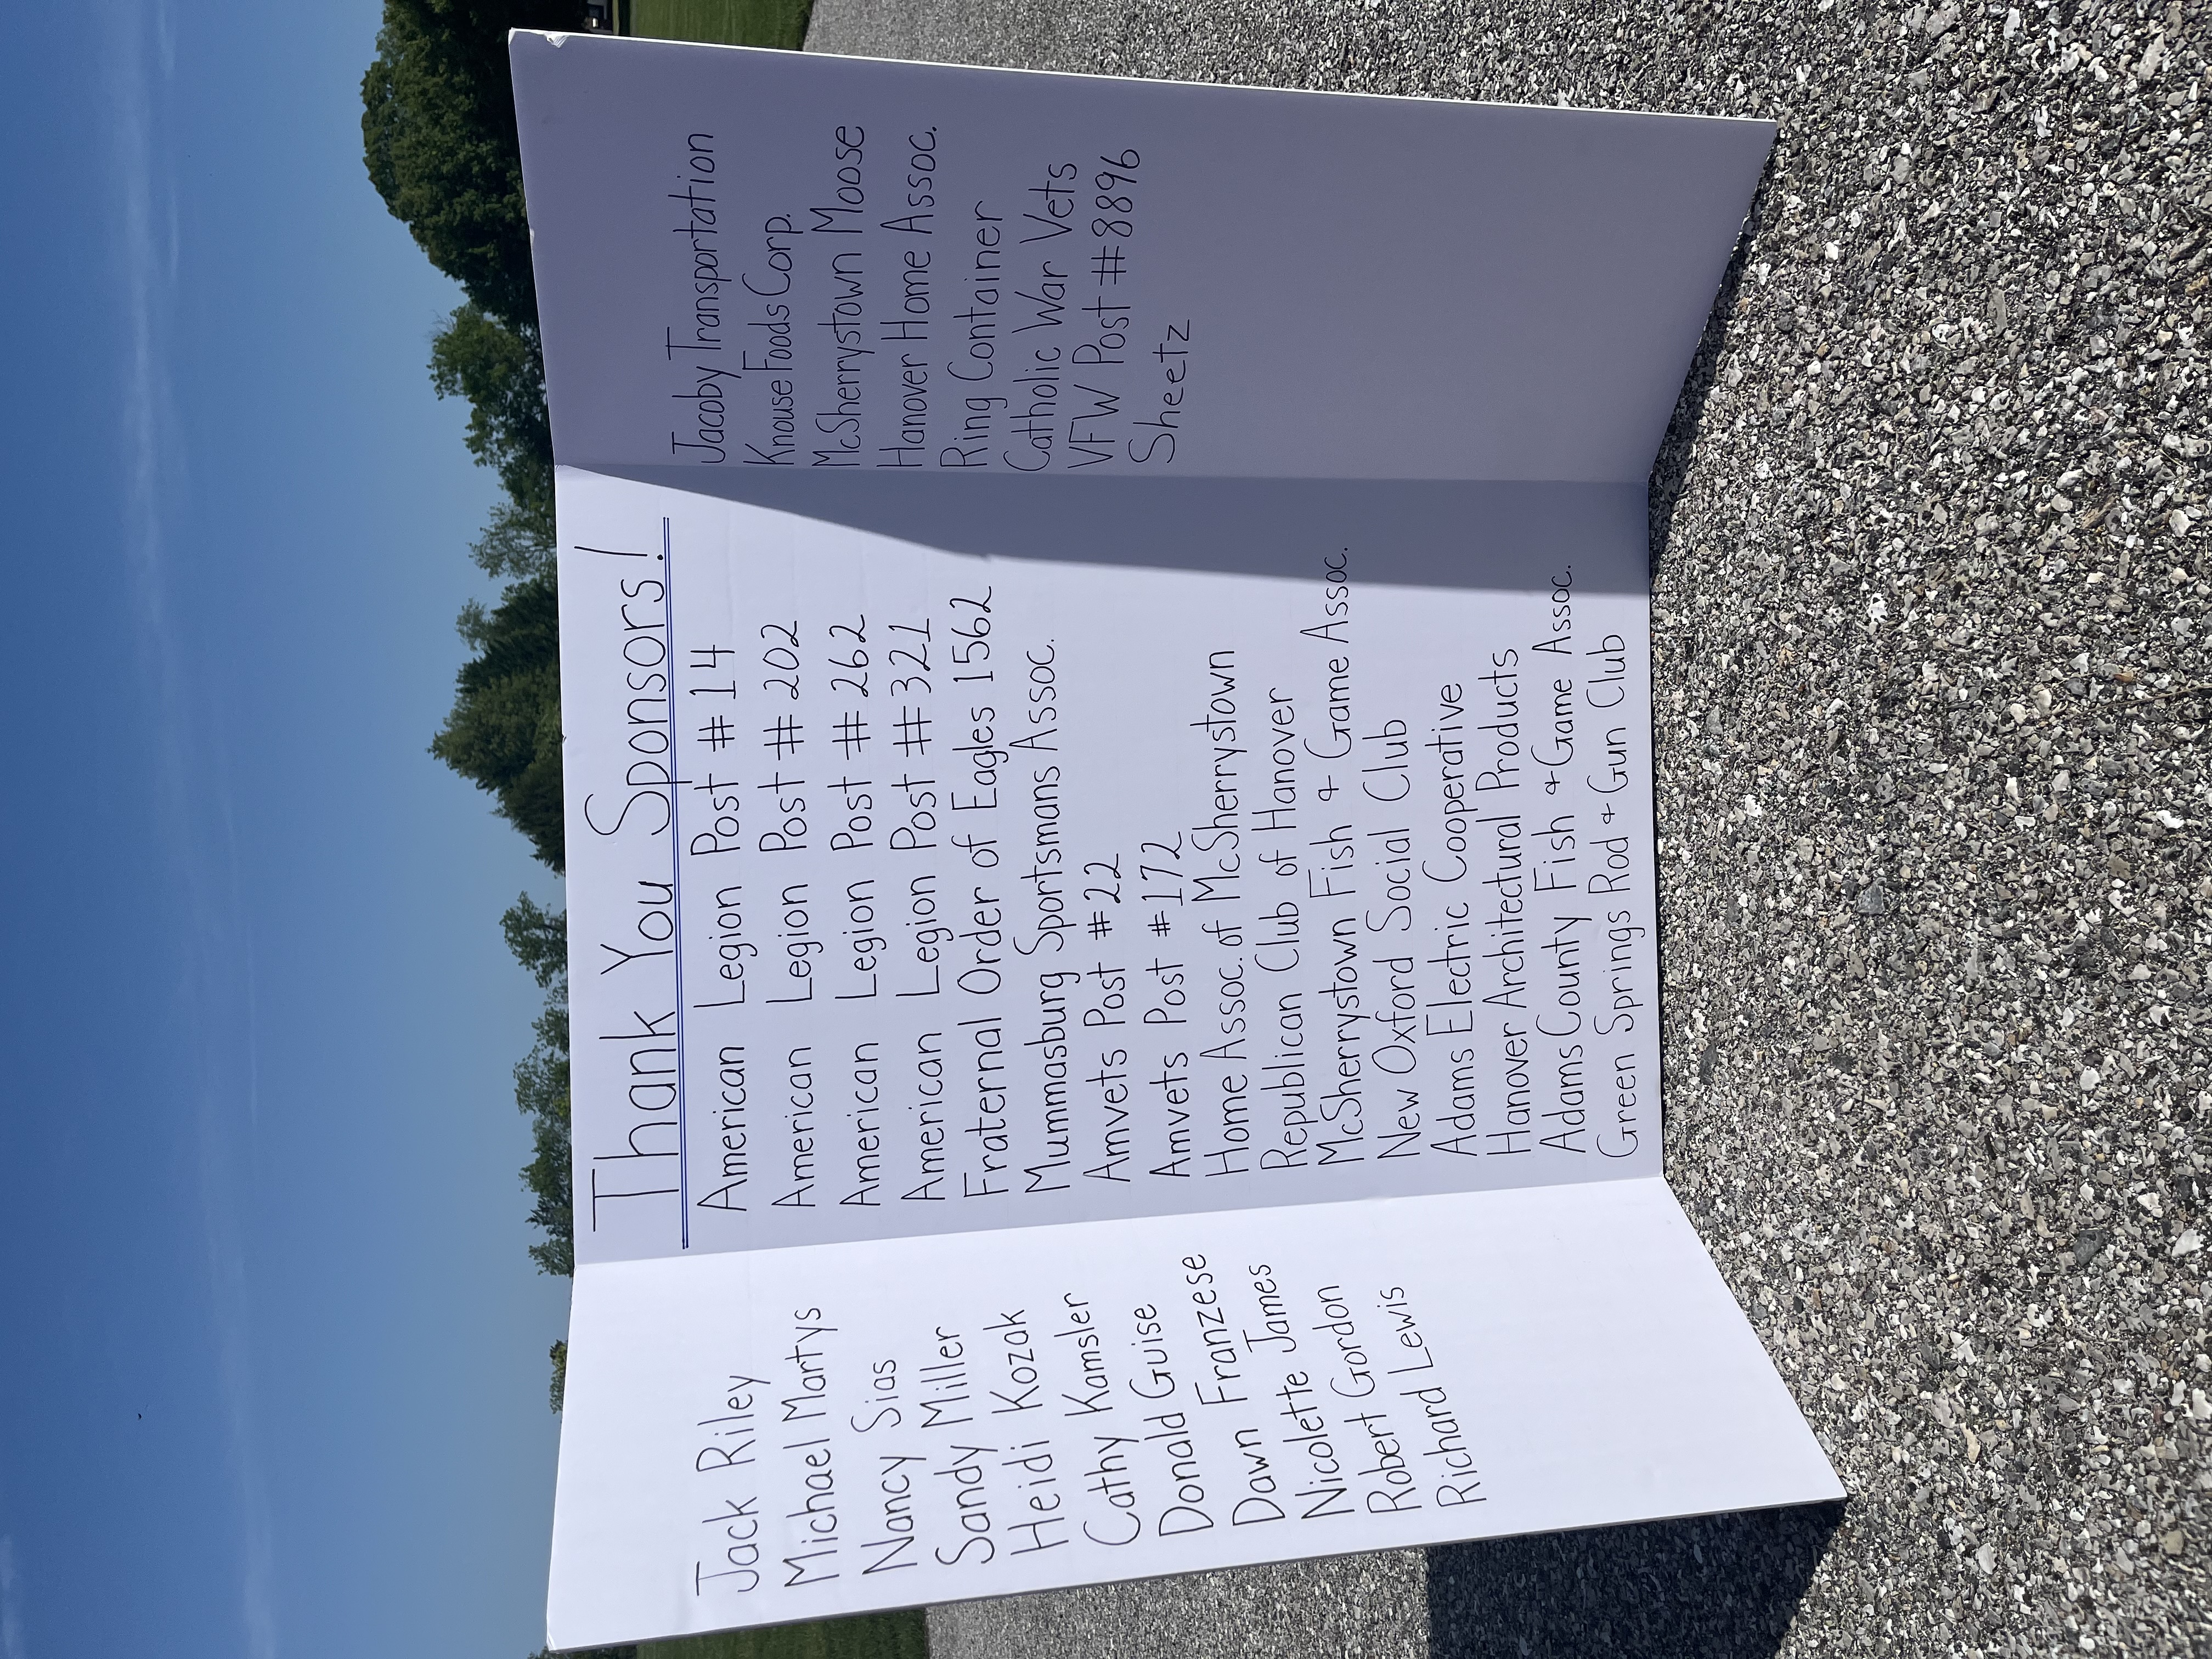 Jack Riley
Michael Martys
Nancy Sias
Sandy Miller
Heidi Kozak
Cathy Kamsler
Donald Guise
Dawn Franzese
Nicolette James
Robert Gordon
Richard Lewis
Thank You Sponsors!
American Legion Post #14
American Legion Post #202
American Legion Post #262
American Legion Post #321
Fraternal Order of Eagles 1562
Mummasburg Sportsmans Assoc.
Amvets Post #22
Amvets Post #172
Home Assoc. of McSherrystown
Republican Club of Hanover
McSherrystown Fish & Game Assoc.
New Oxford Social Club
Adams Electric Cooperative
Hanover Architectural Products
Adams County Fish & Game Assoc.
Green Springs Rod & Gun Club
Jacoby Transportation
Knouse Foods Corp.
McSherrystown Moose
Hanover Home Assoc.
Ring Container
Catholic War Vets
VFW Post #8896
Sheetz